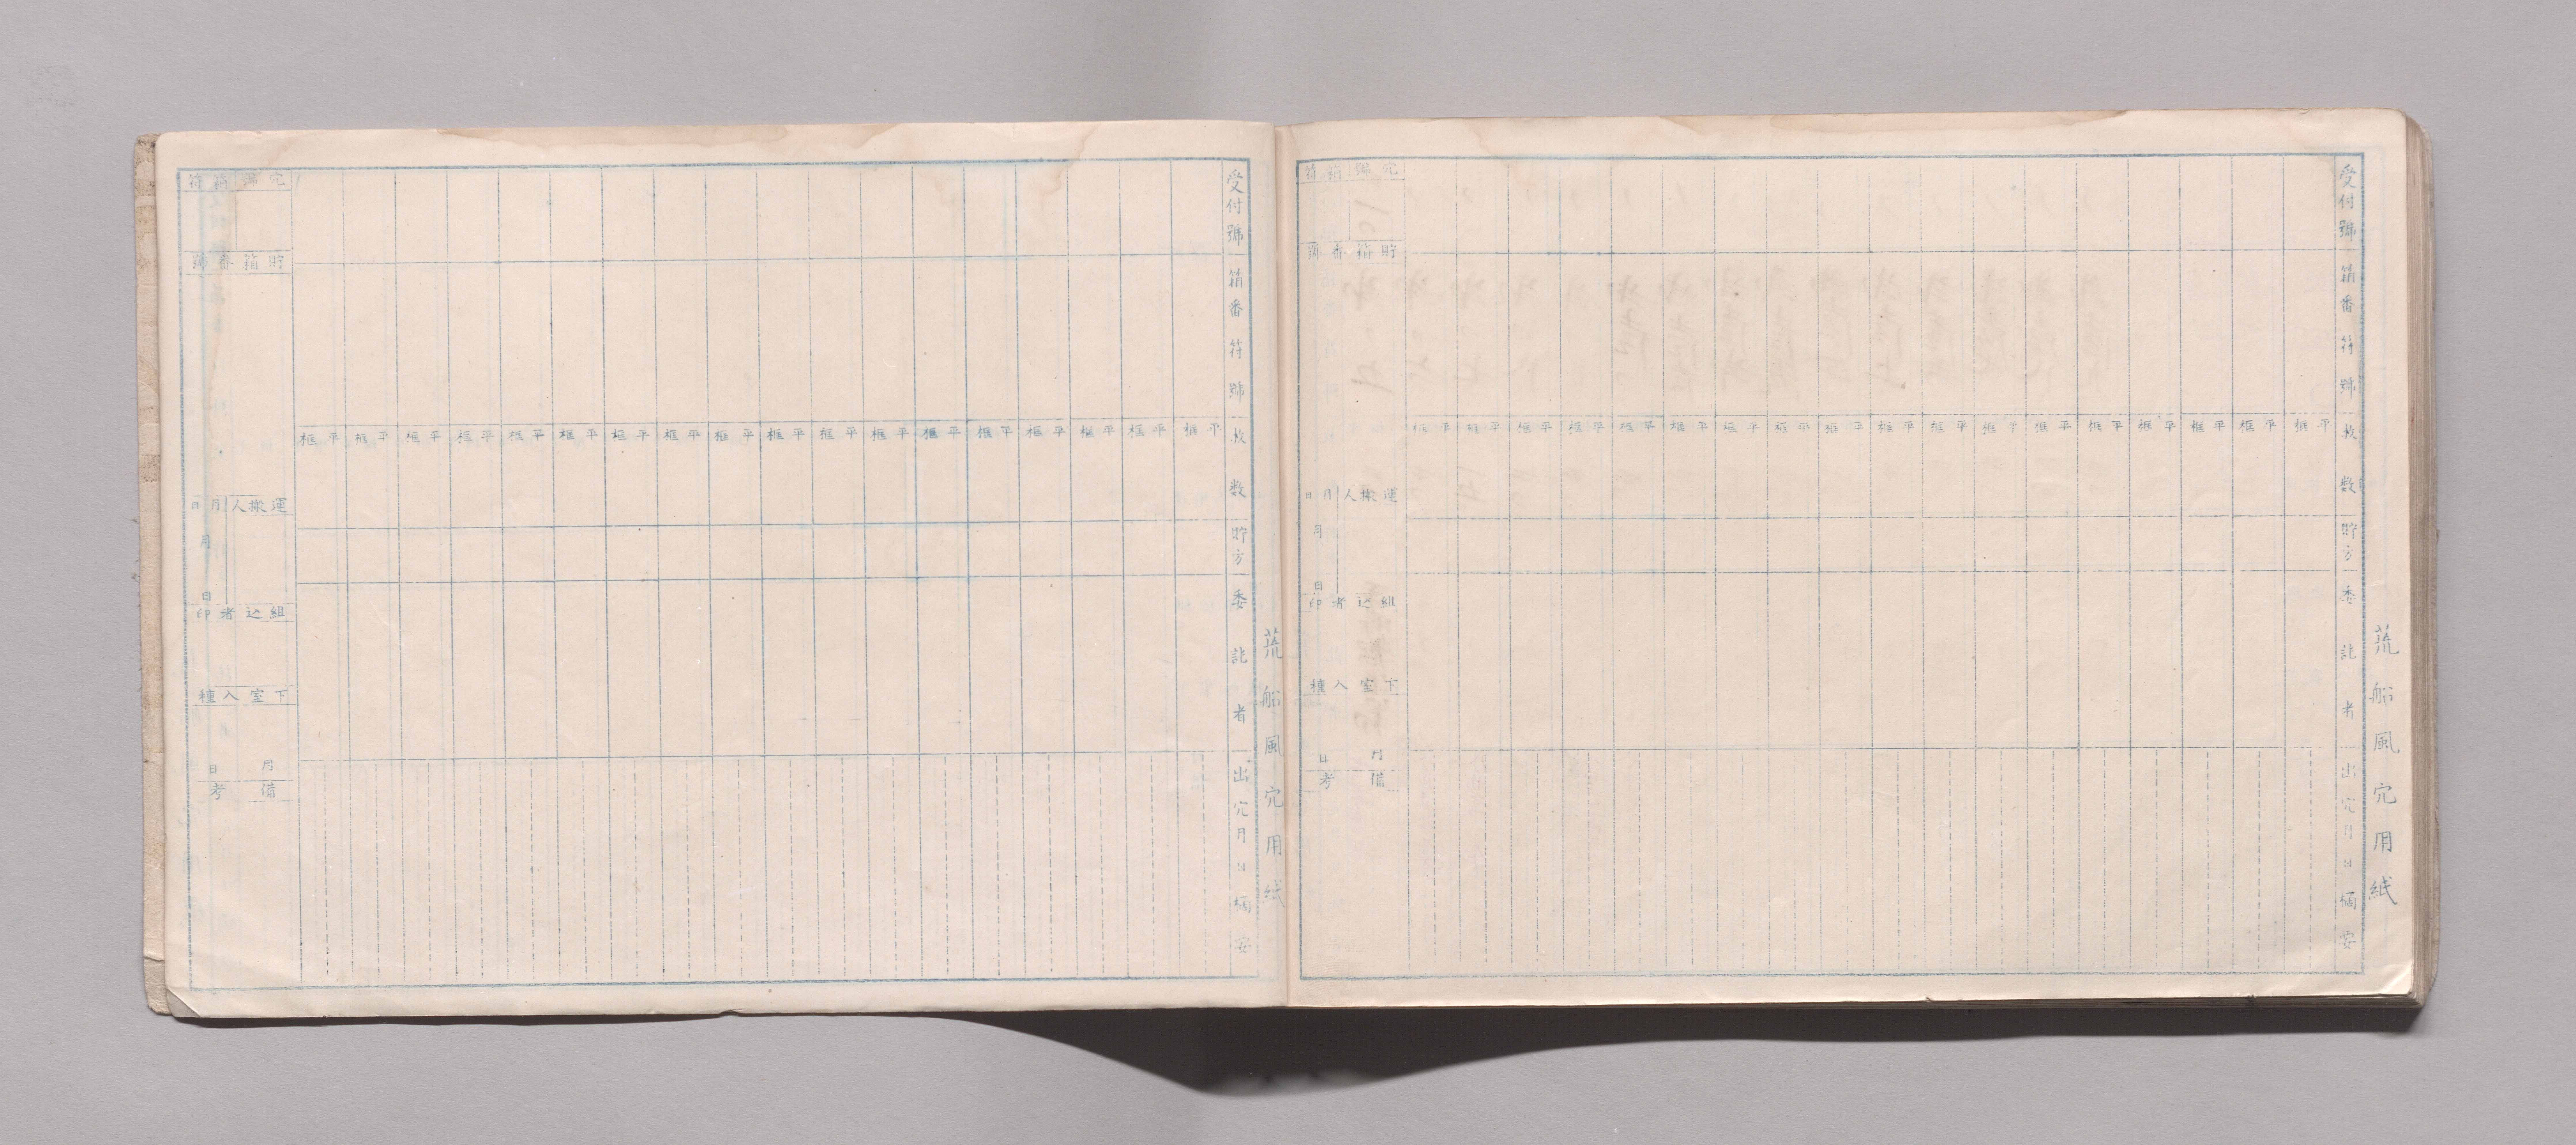 荒船風穴用紙
受付號
箱番符號
枚数
貯方
委託者
出穴月日摘要
平框 平框 平框 平框 平框 平框 平框 平框 平框 平框 平框 平框 平框 平框 平框 平框 平框 平框
貯箱番號
運搬人 月日
月 日
組込者印
下室入種
月 日
備考
荒船風穴用紙
受付號
箱番符號
枚数
貯方
委託者
出穴月日摘要
平框 平框 平框 平框 平框 平框 平框 平框 平框 平框 平框 平框 平框 平框 平框 平框 平框 平框
貯箱番號
運搬人 月日
月 日
組込者印
下室入種
月 日
備考